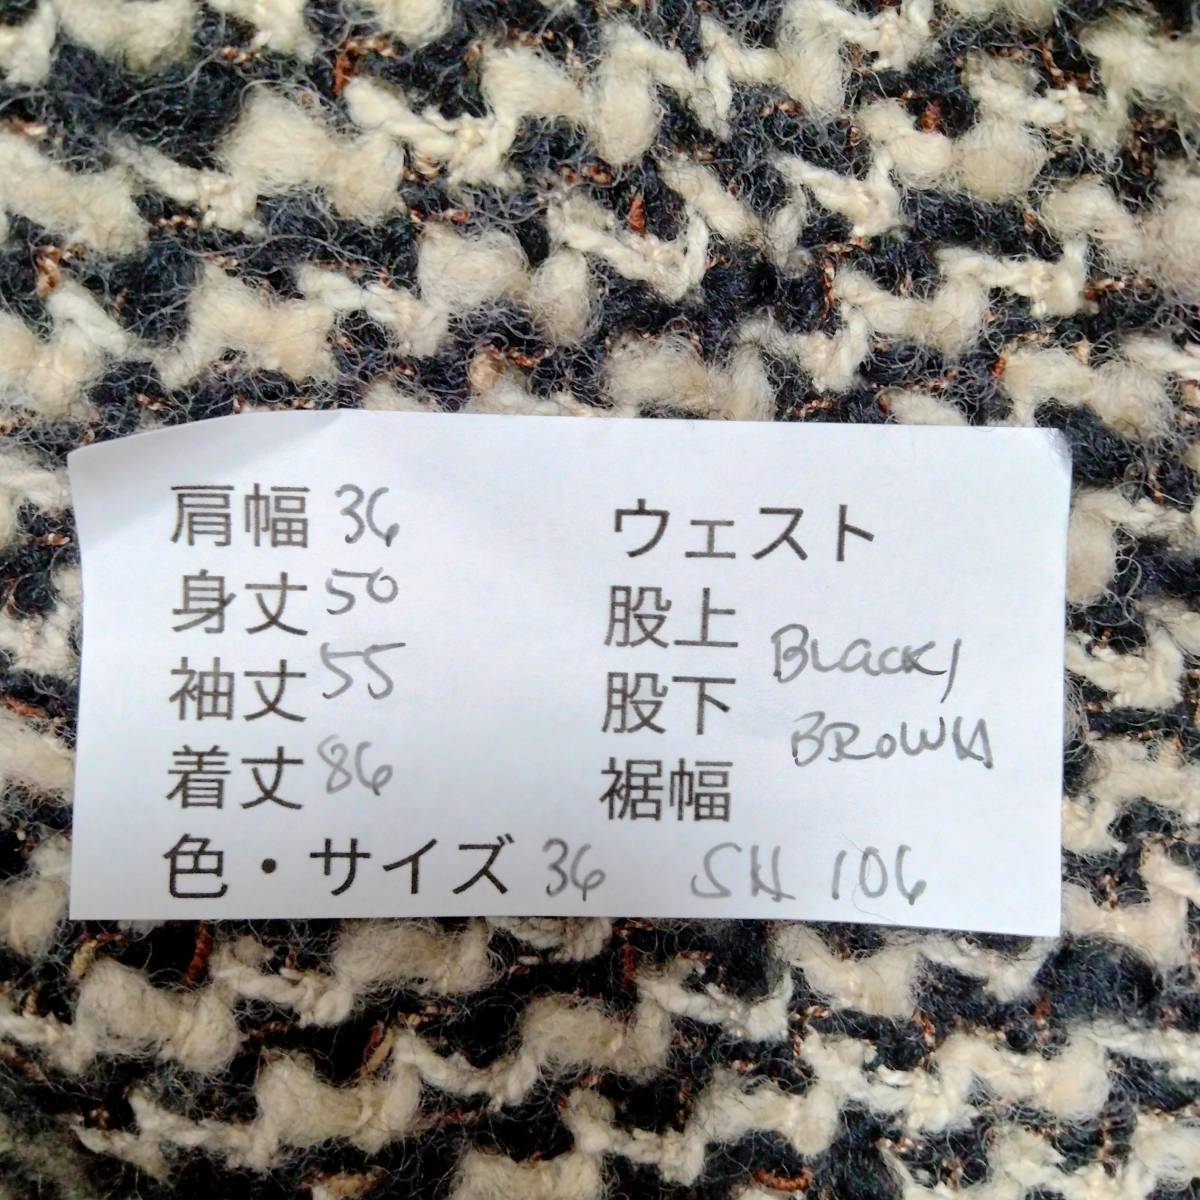 肩幅 36
身丈 50
袖丈 55
着丈 86
ウェスト
股上
股下
裾幅
BLACK/
BROWN
色・サイズ 36 SH 106